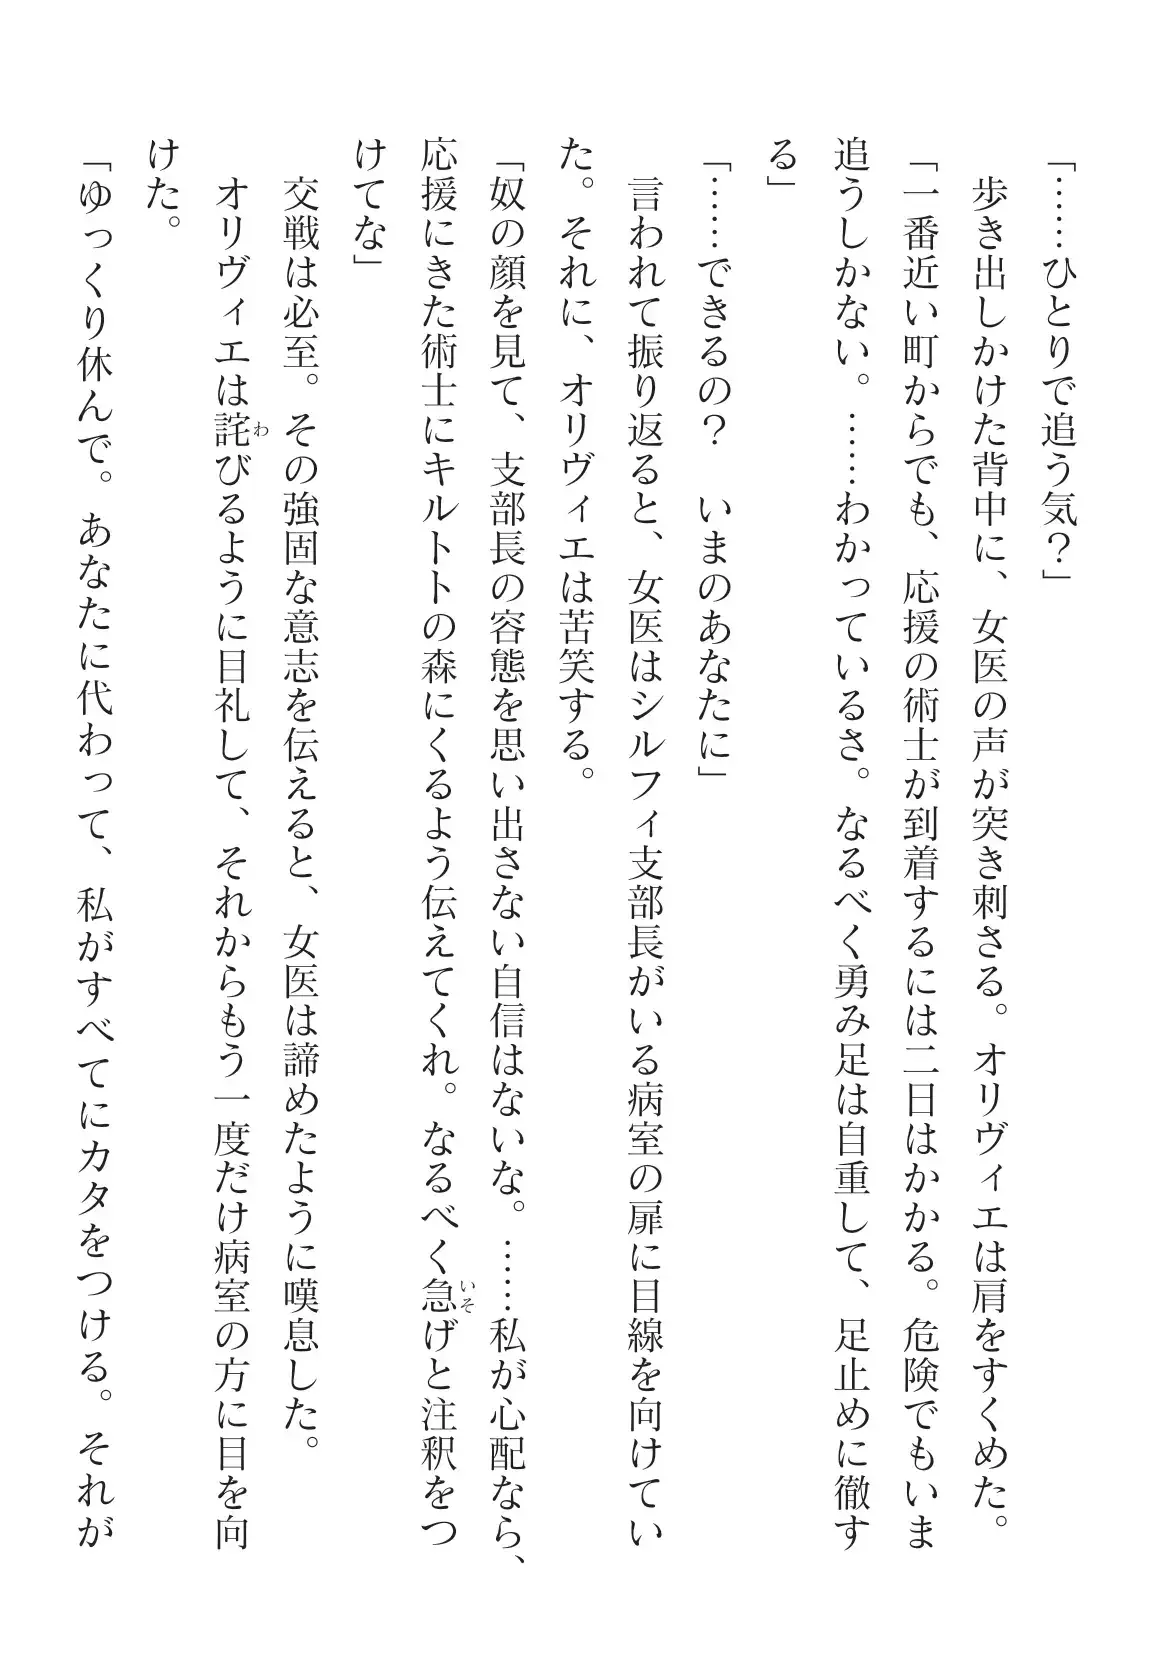 「……ひとりで追う気？」
　歩き出しかけた背中に、女医の声が突き刺さる。オリヴィエは肩をすくめた。
「一番近い町からでも、応援の術士が到着するには二日はかかる。危険でもいま
追うしかない。……わかっているさ。なるべく勇み足は自重して、足止めに徹す
る」
「……できるの？　いまのあなたに」
　言われて振り返ると、女医はシルフィ支部長がいる病室の扉に目線を向けてい
た。それに、オリヴィエは苦笑する。
「奴の顔を見て、支部長の容態を思い出さない自信はないな。……私が心配なら、
応援にきた術士にキルトトの森にくるよう伝えてくれ。なるべく急いそげと注釈をつ
けてな」
　交戦は必至。その強固な意志を伝えると、女医は諦めたように嘆息した。
　オリヴィエは詫わびるように目礼して、それからもう一度だけ病室の方に目を向
けた。
「ゆっくり休んで。あなたに代わって、私がすべてにカタをつける。それが